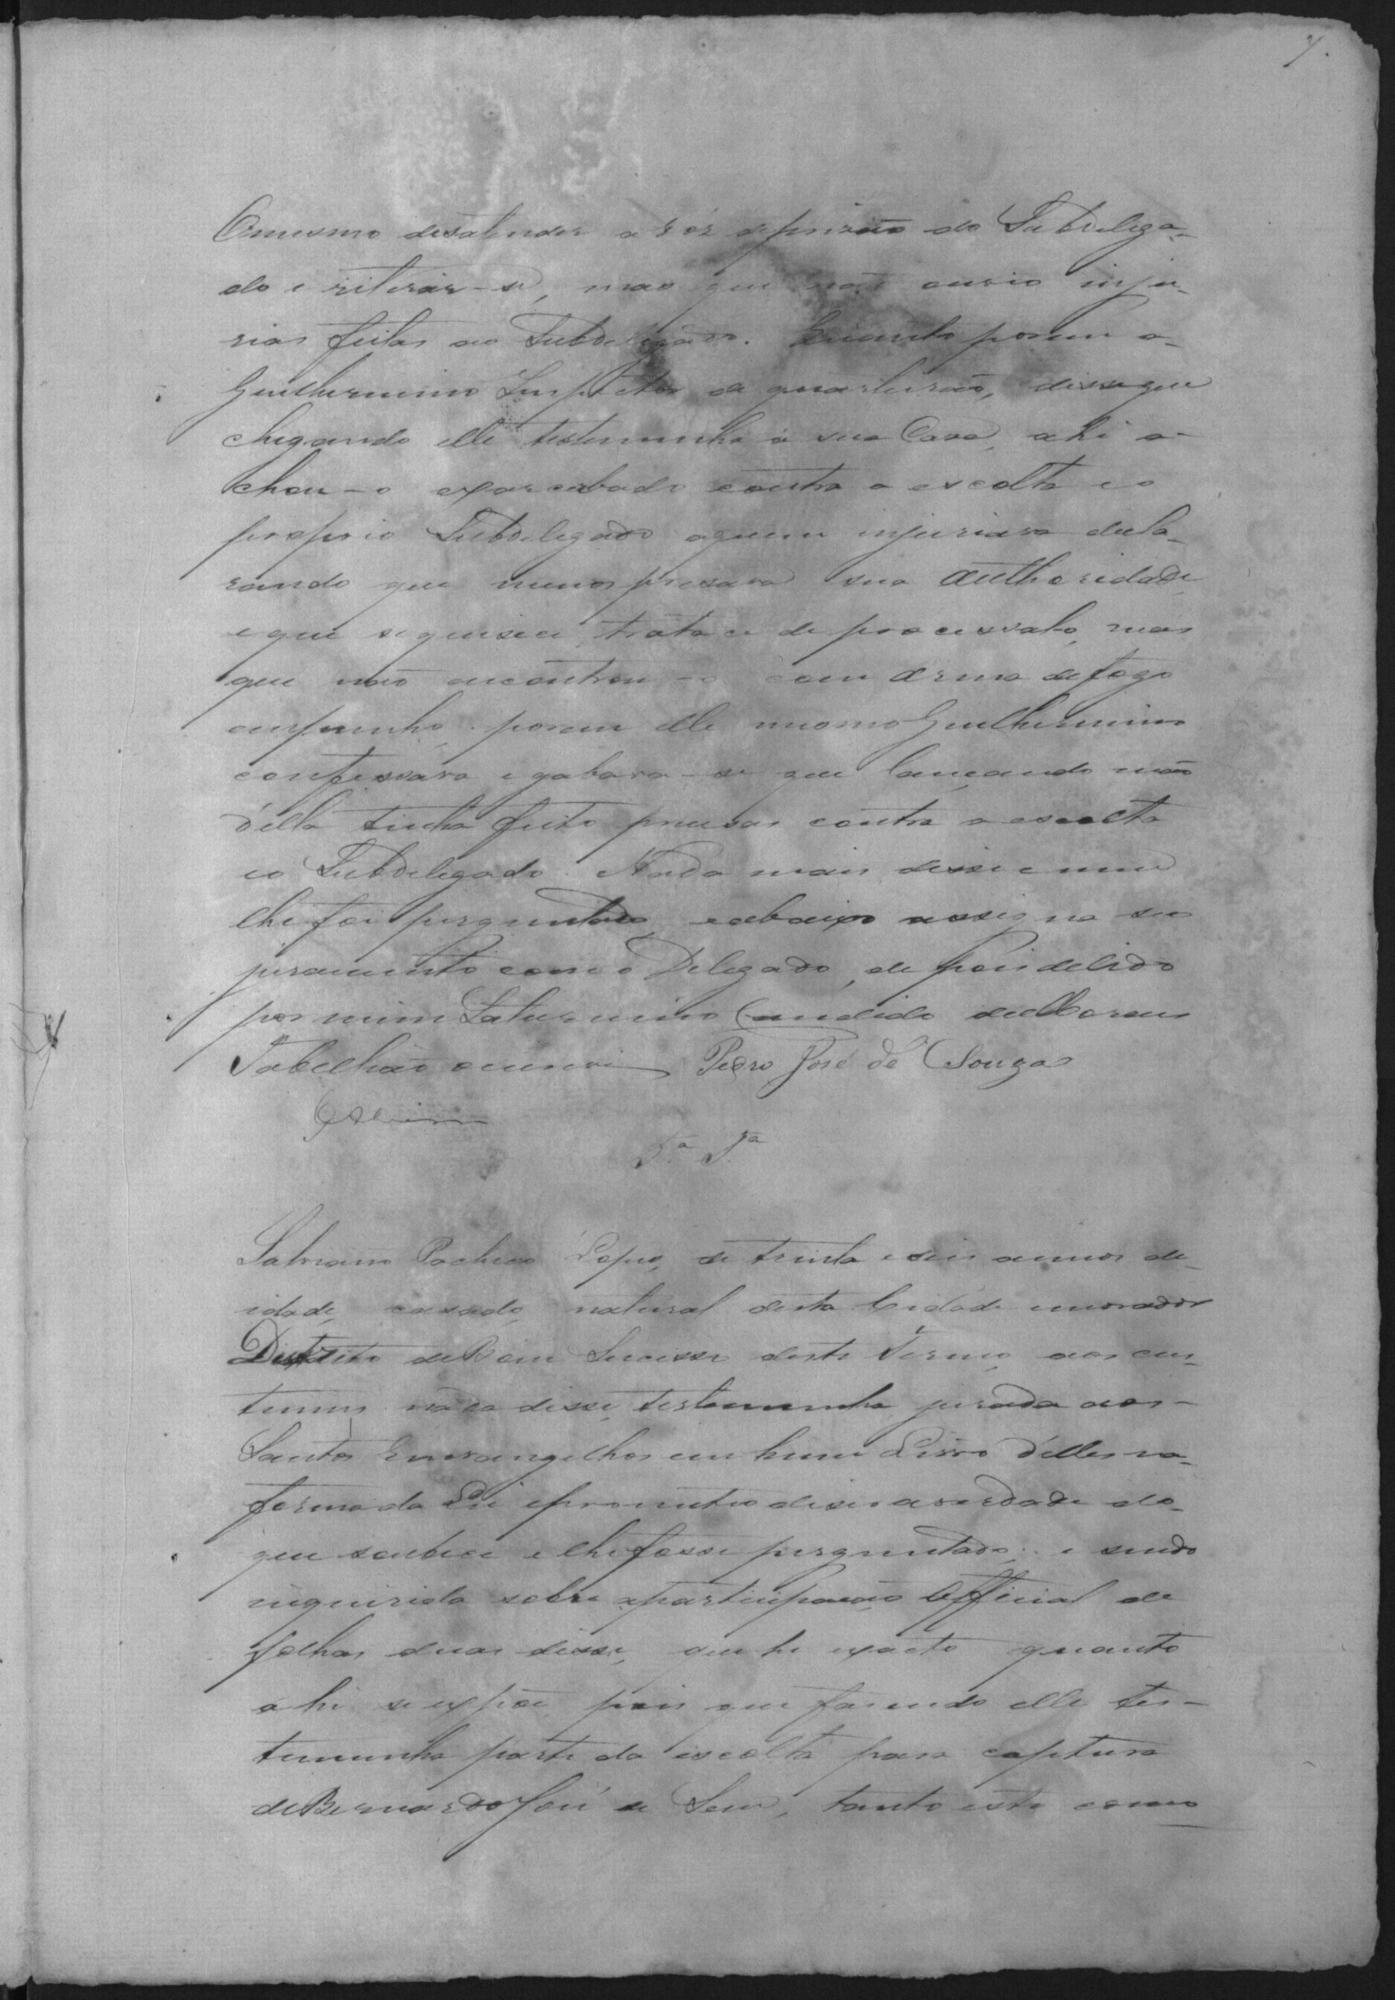 7.
O mesmo desatender a voz de prisão do Subdelega-
do e retirar-se, mas que não ouvio inju-
rias feitas ao Subdelegado. Quanto porem a
Guilhermino Inspetor de quarteirão, disse que
chegando elle testemunha á sua Casa, ahi a-
chou-o exarcebado contra a escolta e o
proprio Subdelegado aquem injuriava decla-
rando que menospresava sua authoridade
e que se quisece, tratace de processalo, mas
que não encontrou-o com arma de fogo
em punho, porem elle mesmo Guilhermino
confessava e gabava-se que lançando mão
d'ella tinha feito presas contra a escolta
e o Subdelegado. Nada mais disse e nem
lhe foi perguntado, e abaixo assigna seu
juramento com o Delegado, depois de lido
por mim Saturnino Candido de Moraes
Tabellião escrevi Pedro José de Souza
5.ª T.ª
Pacheco Lopes, de trinta e seis annos de
idade, casado, natural desta Cidade e morador
Districto de Bom Sucesso deste Termo, aos cus-
tumes nada disse, testemunha jurada aos
Santos Envangelhos em hum Livro d'elles na
forma da Lei e prometeo diser a verdade do
que soubece e lhe fosse perguntado; e sendo
inquirida sobre a participação Official de
folhas duas disse, que he exacto quanto
ahi se expõe, pois que fasendo elle tes-
temunha parte da escolta para captura
de Bernardo José de, tanto este como